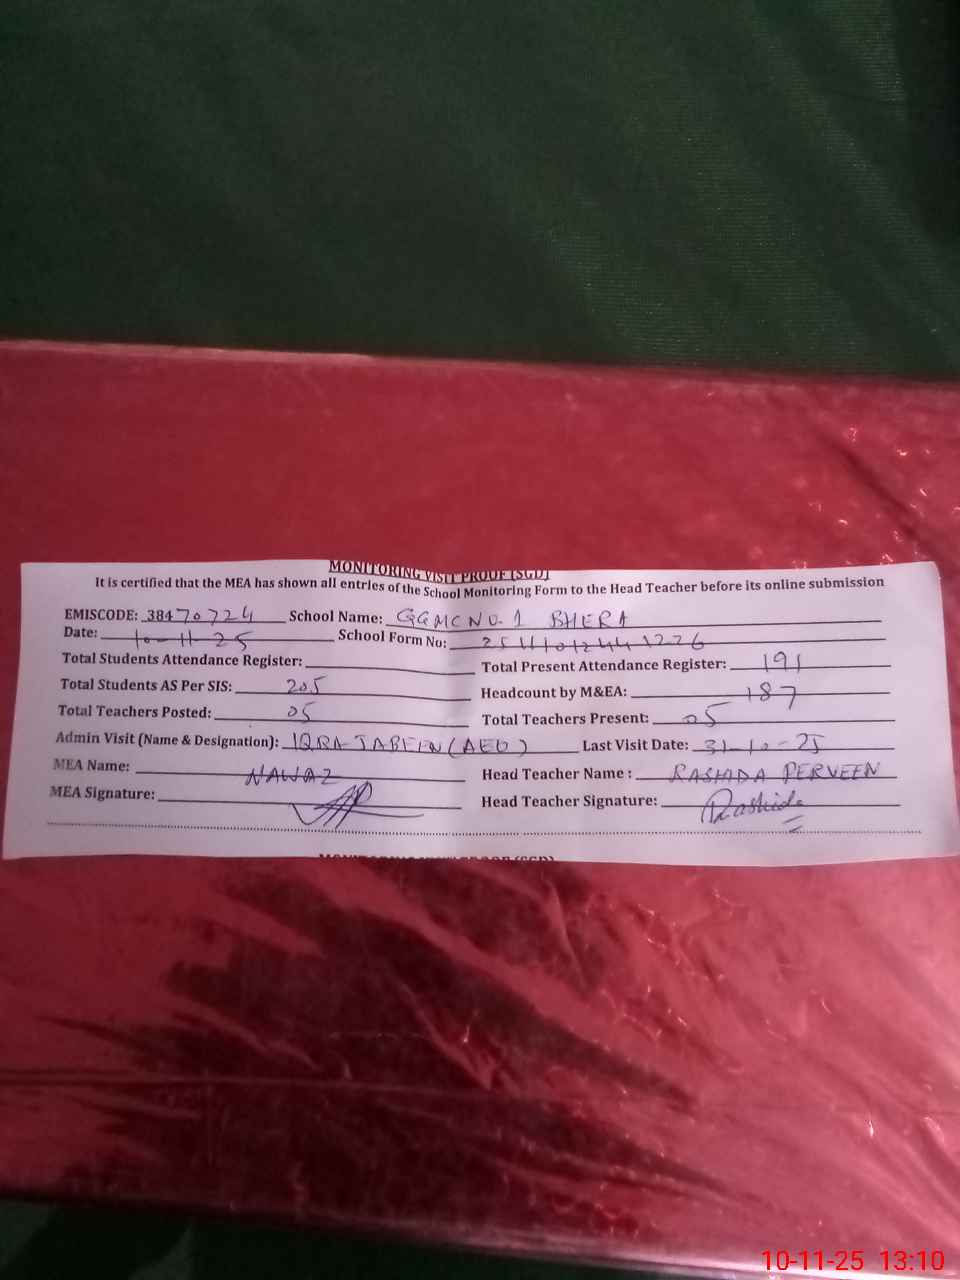 MONITORING VISIT PROOF [SGD]
It is certified that the MEA has shown all entries of the School Monitoring Form to the Head Teacher before its online submission
EMISCODE: 38470724 School Name: GGMC NO. 1 BHERA
Date: 10-11-25 School Form No:
Total Students Attendance Register: Total Present Attendance Register: 191
Total Students AS Per SIS: 205 Headcount by M&EA: 187
Total Teachers Posted: 05 Total Teachers Present: 05
Admin Visit (Name & Designation): IQRA JABEEN (AEO) Last Visit Date: 31-10-25
MEA Name: NAWAZ Head Teacher Name : RASHIDA PERVEEN
MEA Signature: Head Teacher Signature: Rashida
MONITORING VISIT PROOF [SGD]
10-11-25 13:10